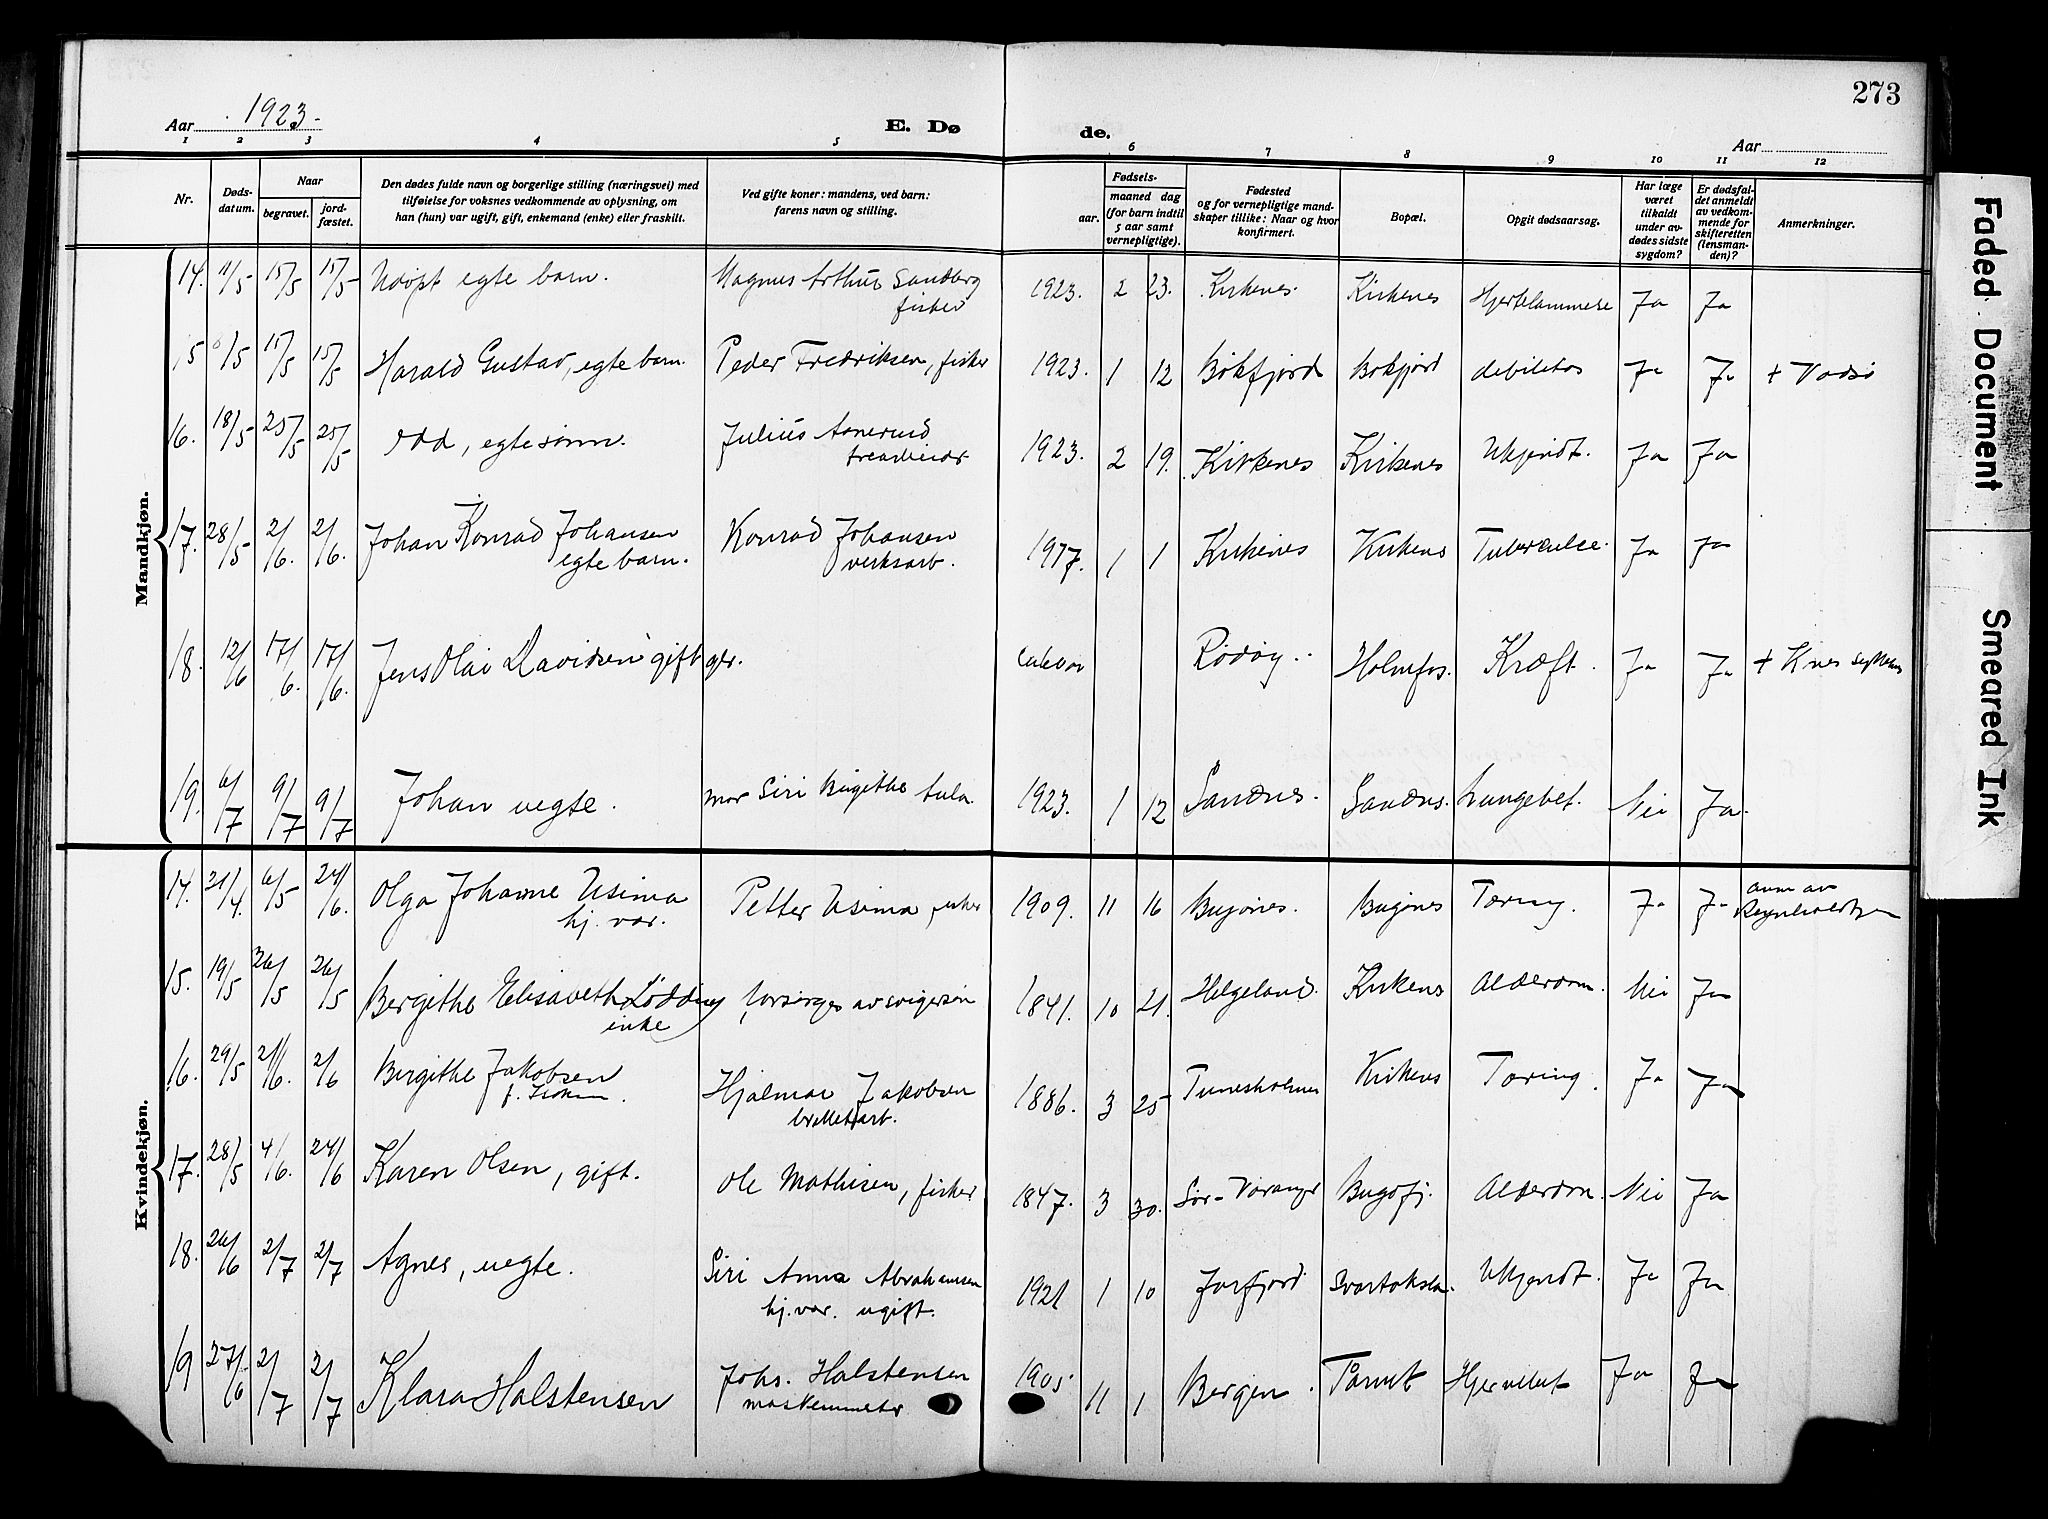 273
Aar 1923.
E. Dø
de.
Aar
1 2 3 4 5 6 7 8 9 10 11 12
Nr.
Døds-
datum.
Naar
begravet.
jord-
fæstet.
Den dødes fulde navn og borgerlige stilling (næringsvei) med
tilføielse for voksnes vedkommende av oplysning, om
han (hun) var ugift, gift, enkemand (enke) eller fraskilt.
Ved gifte koner: mandens, ved barn:
farens navn og stilling.
Fødsels-
aar.
maaned dag
(for barn indtil
5 aar samt
vernepligtige).
Fødested
og for vernepligtige mand-
skaper tillike: Naar og hvor
konfirmert.
Bopæl.
Opgit dødsaarsag.
Har læge
været
tilkaldt
under av-
dødes sidste
sygdom?
Er dødsfal-
det anmeldt
av vedkom-
mende for
skifteretten
(lensman-
den)?
Anmerkninger.
Mandkjøn.
14. 11/5 15/5 15/5 Udøpt egte barn. Magnus Arthur Sandberg 1923. 2 23. Kirkenes. Kirkenes Hjertelammelse Ja Ja
fisker
15 /5 15/5 15/5 Harald Gustav, egte barn. Peder Fredriksen, fisker 1923. 1 12 Bökfjord Bokfjord debilitas Ja Ja + Vadsö
16. 18/5 25/5 25/5 Odd, egte sönn. Julius Aanerud 1923. 2 19. Kirkenes Kirkenes Ukjendt. Ja Ja
17. 28/5 2/6. 2/6. Johan Konrad Johansen Konrad Johansen 1917. 1 1 Kirkenes Kirkenes Tuberculose. Ja Ja
egte barn. verksarb.
18. 12/6 17/6. 17/6. Jens Olai Davidsen gift Rödöy. Holmfos. Kræft. Ja Ja + Knes sykehus
19. 6/7 9/7 9/7 Johan uegte. mor Siri Birgithe 1923. 1 12 Sandnes. Sandnes. Lungebet. Nei Ja.
Kvindekjøn.
14. 21/4. 6/5 24/6. Olga Johanne Usima Petter Usima fisker 1909. 11 16 Bugönes. Bugönes Tæring. Ja Ja anm av
hj. vær.
15. 19/5 26/5 26/5 Bergithe Elisaveth Lödding forsörges av svigersön 1841. 10 21. Helgeland. Kirkenes Alderdom. Nei Ja
enke
16. 29/5 2/6. 2/6 Birgithe Jakobsen Hjalmar Jakobsen 1886. 3 25 Kirkenes Tæring. Ja Ja
17. 28/5 4/6. 24/6 Karen Olsen, gift. Ole Mathisen, fisker 1847. 3 30. Sör-Varanger Bugöfj. Alderdom. Nei Ja
18. 26/6 2/7 2/7 Agnes, uegte. Siri Anna Abrahamsen 1921 1 10 Jarfjord Svartaksla. Ukjendt. Ja Ja
hj. vær. ugift.
19 27/6 2/7 2/7 Klara Halstensen Johs. Halstensen 1905 11 1 Bergen. Tårnet Hjernebet Ja Ja
Faded Document
Smeared Ink